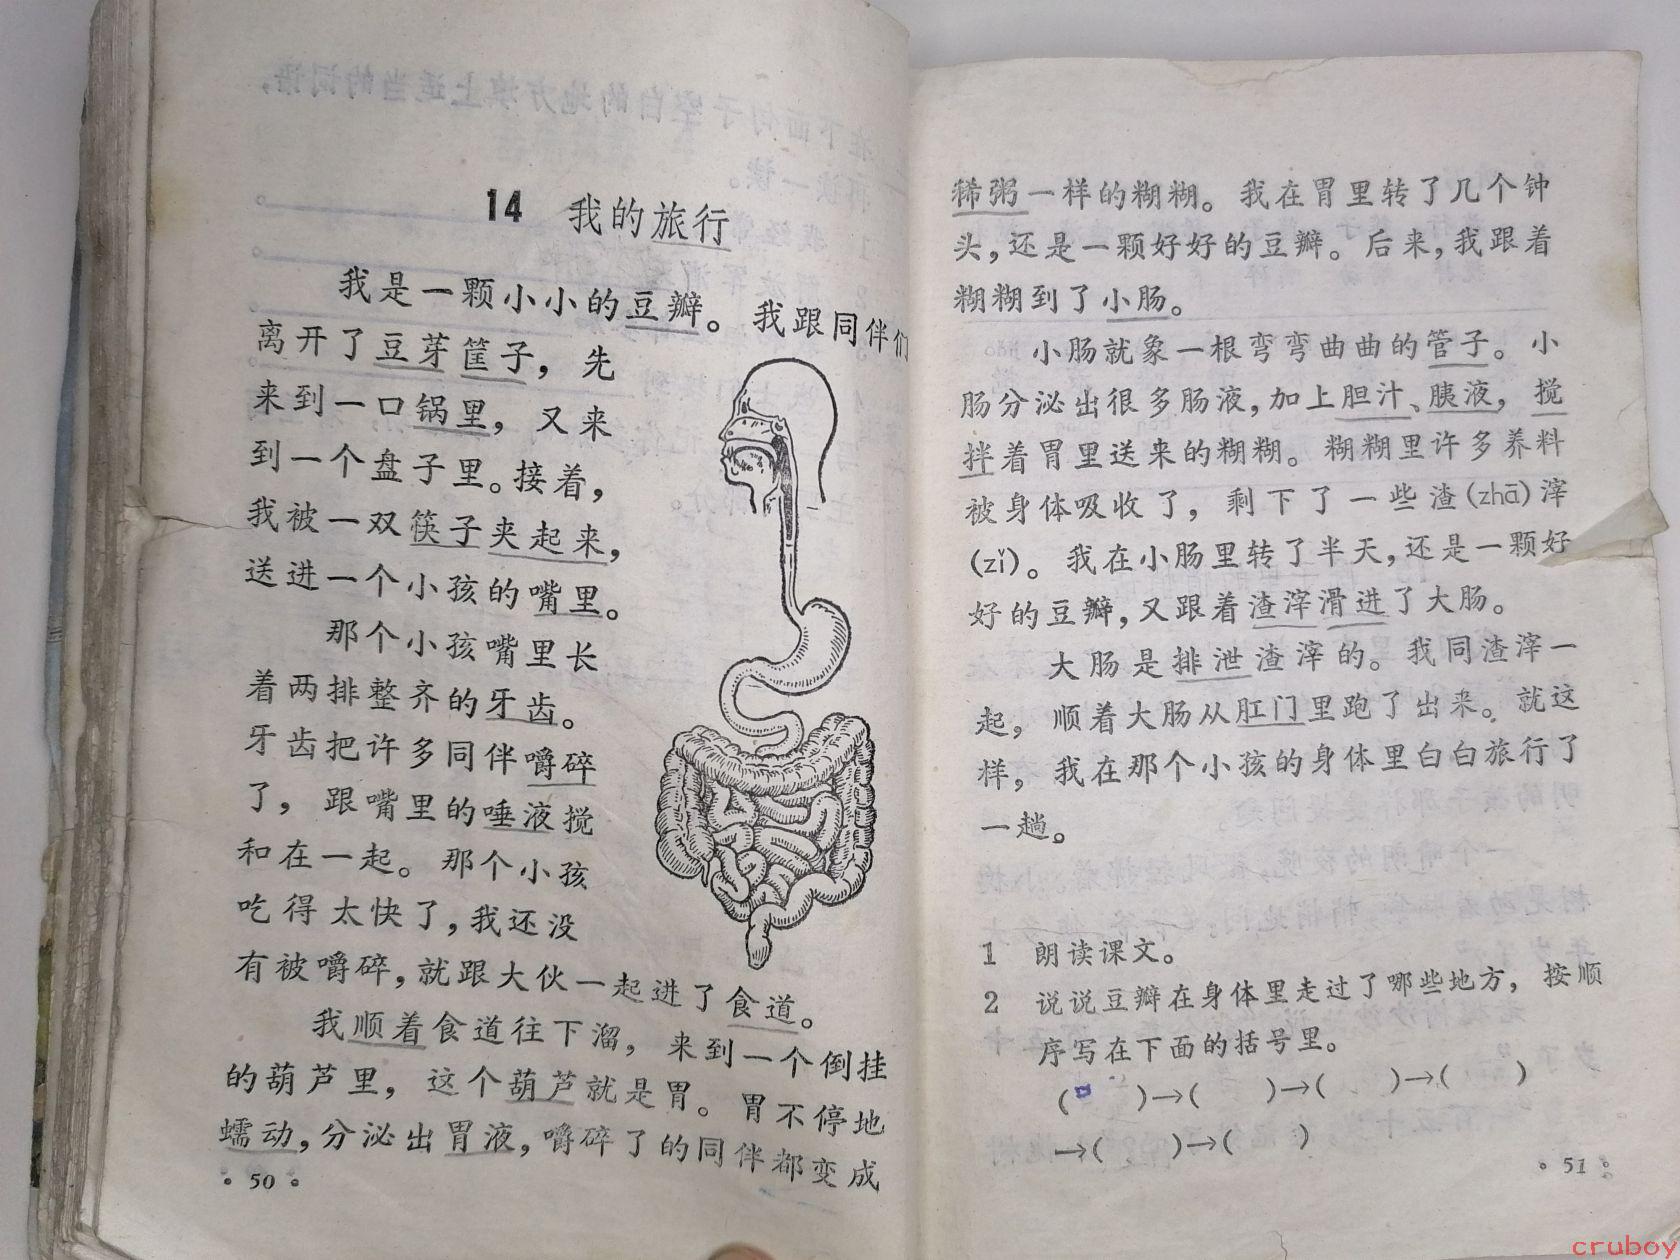 14 我的旅行
我是一颗小小的豆瓣。我跟同伴们
离开了豆芽筐子，先
来到一口锅里，又来
到一个盘子里。接着，
我被一双筷子夹起来，
送进一个小孩的嘴里。
那个小孩嘴里长
着两排整齐的牙齿。
牙齿把许多同伴嚼碎
了，跟嘴里的唾液搅
和在一起。那个小孩
吃得太快了，我还没
有被嚼碎，就跟大伙一起进了食道。
我顺着食道往下溜，来到一个倒挂
的葫芦里，这个葫芦就是胃。胃不停地
蠕动，分泌出胃液，嚼碎了的同伴都变成
·50·
稀粥一样的糊糊。我在胃里转了几个钟
头，还是一颗好好的豆瓣。后来，我跟着
糊糊到了小肠。
小肠就象一根弯弯曲曲的管子。小
肠分泌出很多肠液，加上胆汁、胰液，搅
拌着胃里送来的糊糊。糊糊里许多养料
被身体吸收了，剩下了一些渣(zhā)滓
(zǐ)。我在小肠里转了半天，还是一颗好
好的豆瓣，又跟着渣滓滑进了大肠。
大肠是排泄渣滓的。我同渣滓一
起，顺着大肠从肛门里跑了出来。就这
样，我在那个小孩的身体里白白旅行了
一趟。
1 朗读课文。
2 说说豆瓣在身体里走过了哪些地方，按顺
序写在下面的括号里。
(口 )→( )→( )→( )
→( )→( )
·51·
cruboy